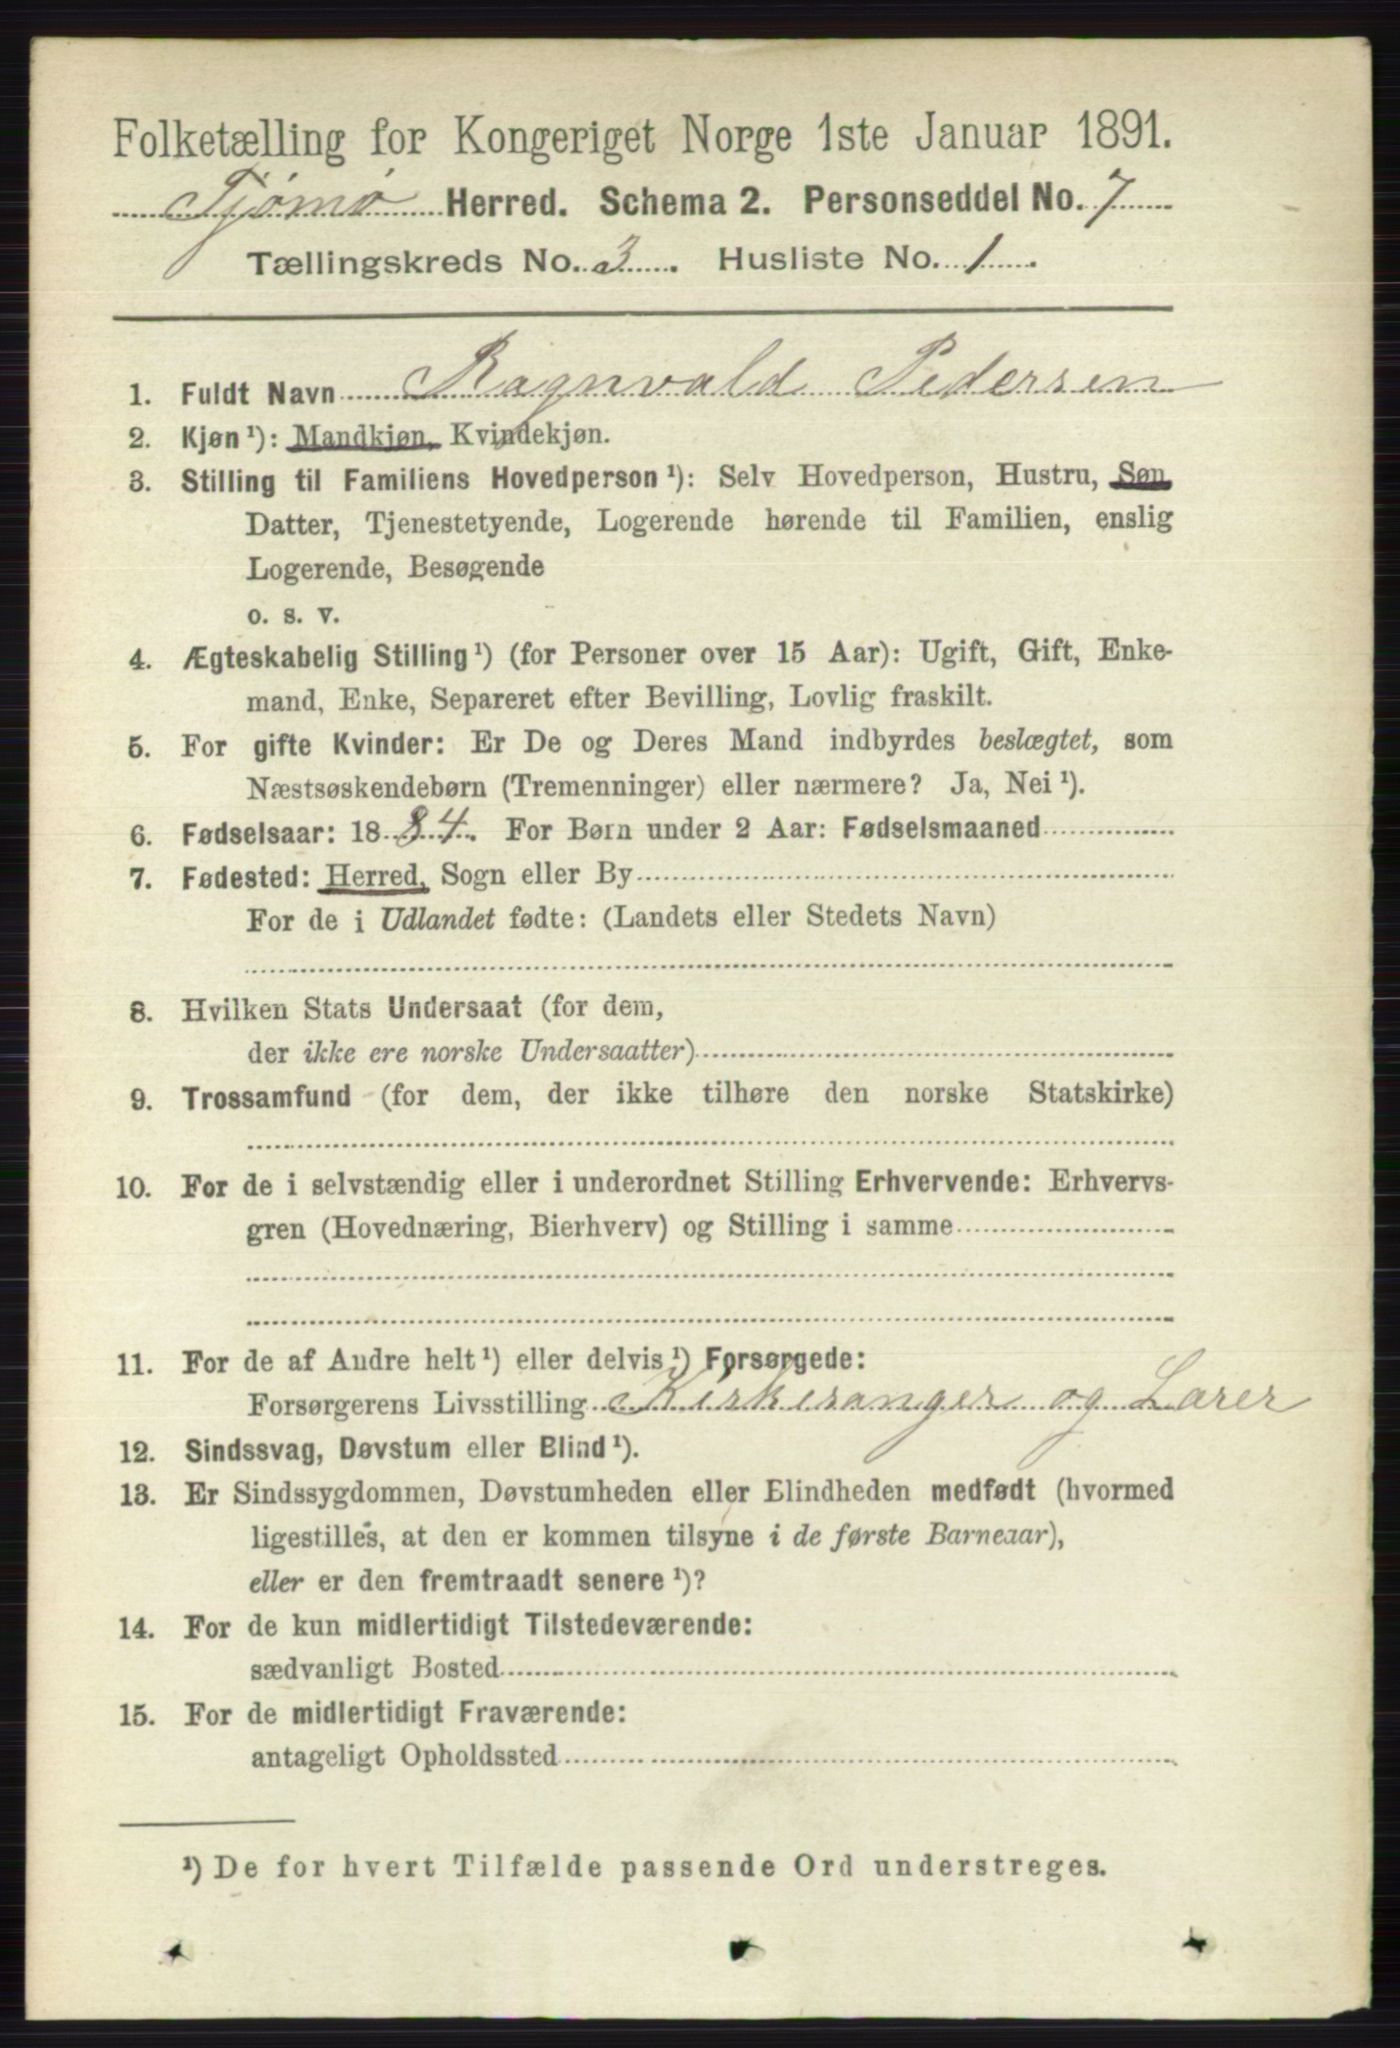 Folketælling for Kongeriget Norge 1ste Januar 1891.
Tjømø Herred. Schema 2. Personseddel No. 7
Tællingskreds No. 3. Husliste No. 1.
1. Fuldt Navn Ragnvald Pedersen
2. Kjøn¹): Mandkjøn, Kvindekjøn.
3. Stilling til Familiens Hovedperson¹): Selv Hovedperson, Hustru, Søn
Datter, Tjenestetyende, Logerende hørende til Familien, enslig
Logerende, Besøgende
o. s. v.
4. Ægteskabelig Stilling¹) (for Personer over 15 Aar): Ugift, Gift, Enke-
mand, Enke, Separeret efter Bevilling, Lovlig fraskilt.
5. For gifte Kvinder: Er De og Deres Mand indbyrdes beslægtet, som
Næstsøskendebørn (Tremenninger) eller nærmere? Ja, Nei¹).
6. Fødselsaar: 1884. For Børn under 2 Aar: Fødselsmaaned
7. Fødested: Herred, Sogn eller By
For de i Udlandet fødte: (Landets eller Stedets Navn)
8. Hvilken Stats Undersaat (for dem,
der ikke ere norske Undersaatter)
9. Trossamfund (for dem, der ikke tilhøre den norske Statskirke)
10. For de i selvstændig eller i underordnet Stilling Erhvervende: Erhvervs-
gren (Hovednæring, Bierhverv) og Stilling i samme
11. For de af Andre helt¹) eller delvis¹) Forsørgede:
Forsørgerens Livsstilling Kirkesanger og Lærer
12. Sindssvag, Døvstum eller Blind¹).
13. Er Sindssygdommen, Døvstumheden eller Blindheden medfødt (hvormed
ligestilles, at den er kommen tilsyne i de første Barneaar),
eller er den fremtraadt senere¹)?
14. For de kun midlertidigt Tilstedeværende:
sædvanligt Bosted
15. For de midlertidigt Fraværende:
antageligt Opholdssted
¹) De for hvert Tilfælde passende Ord understreges.